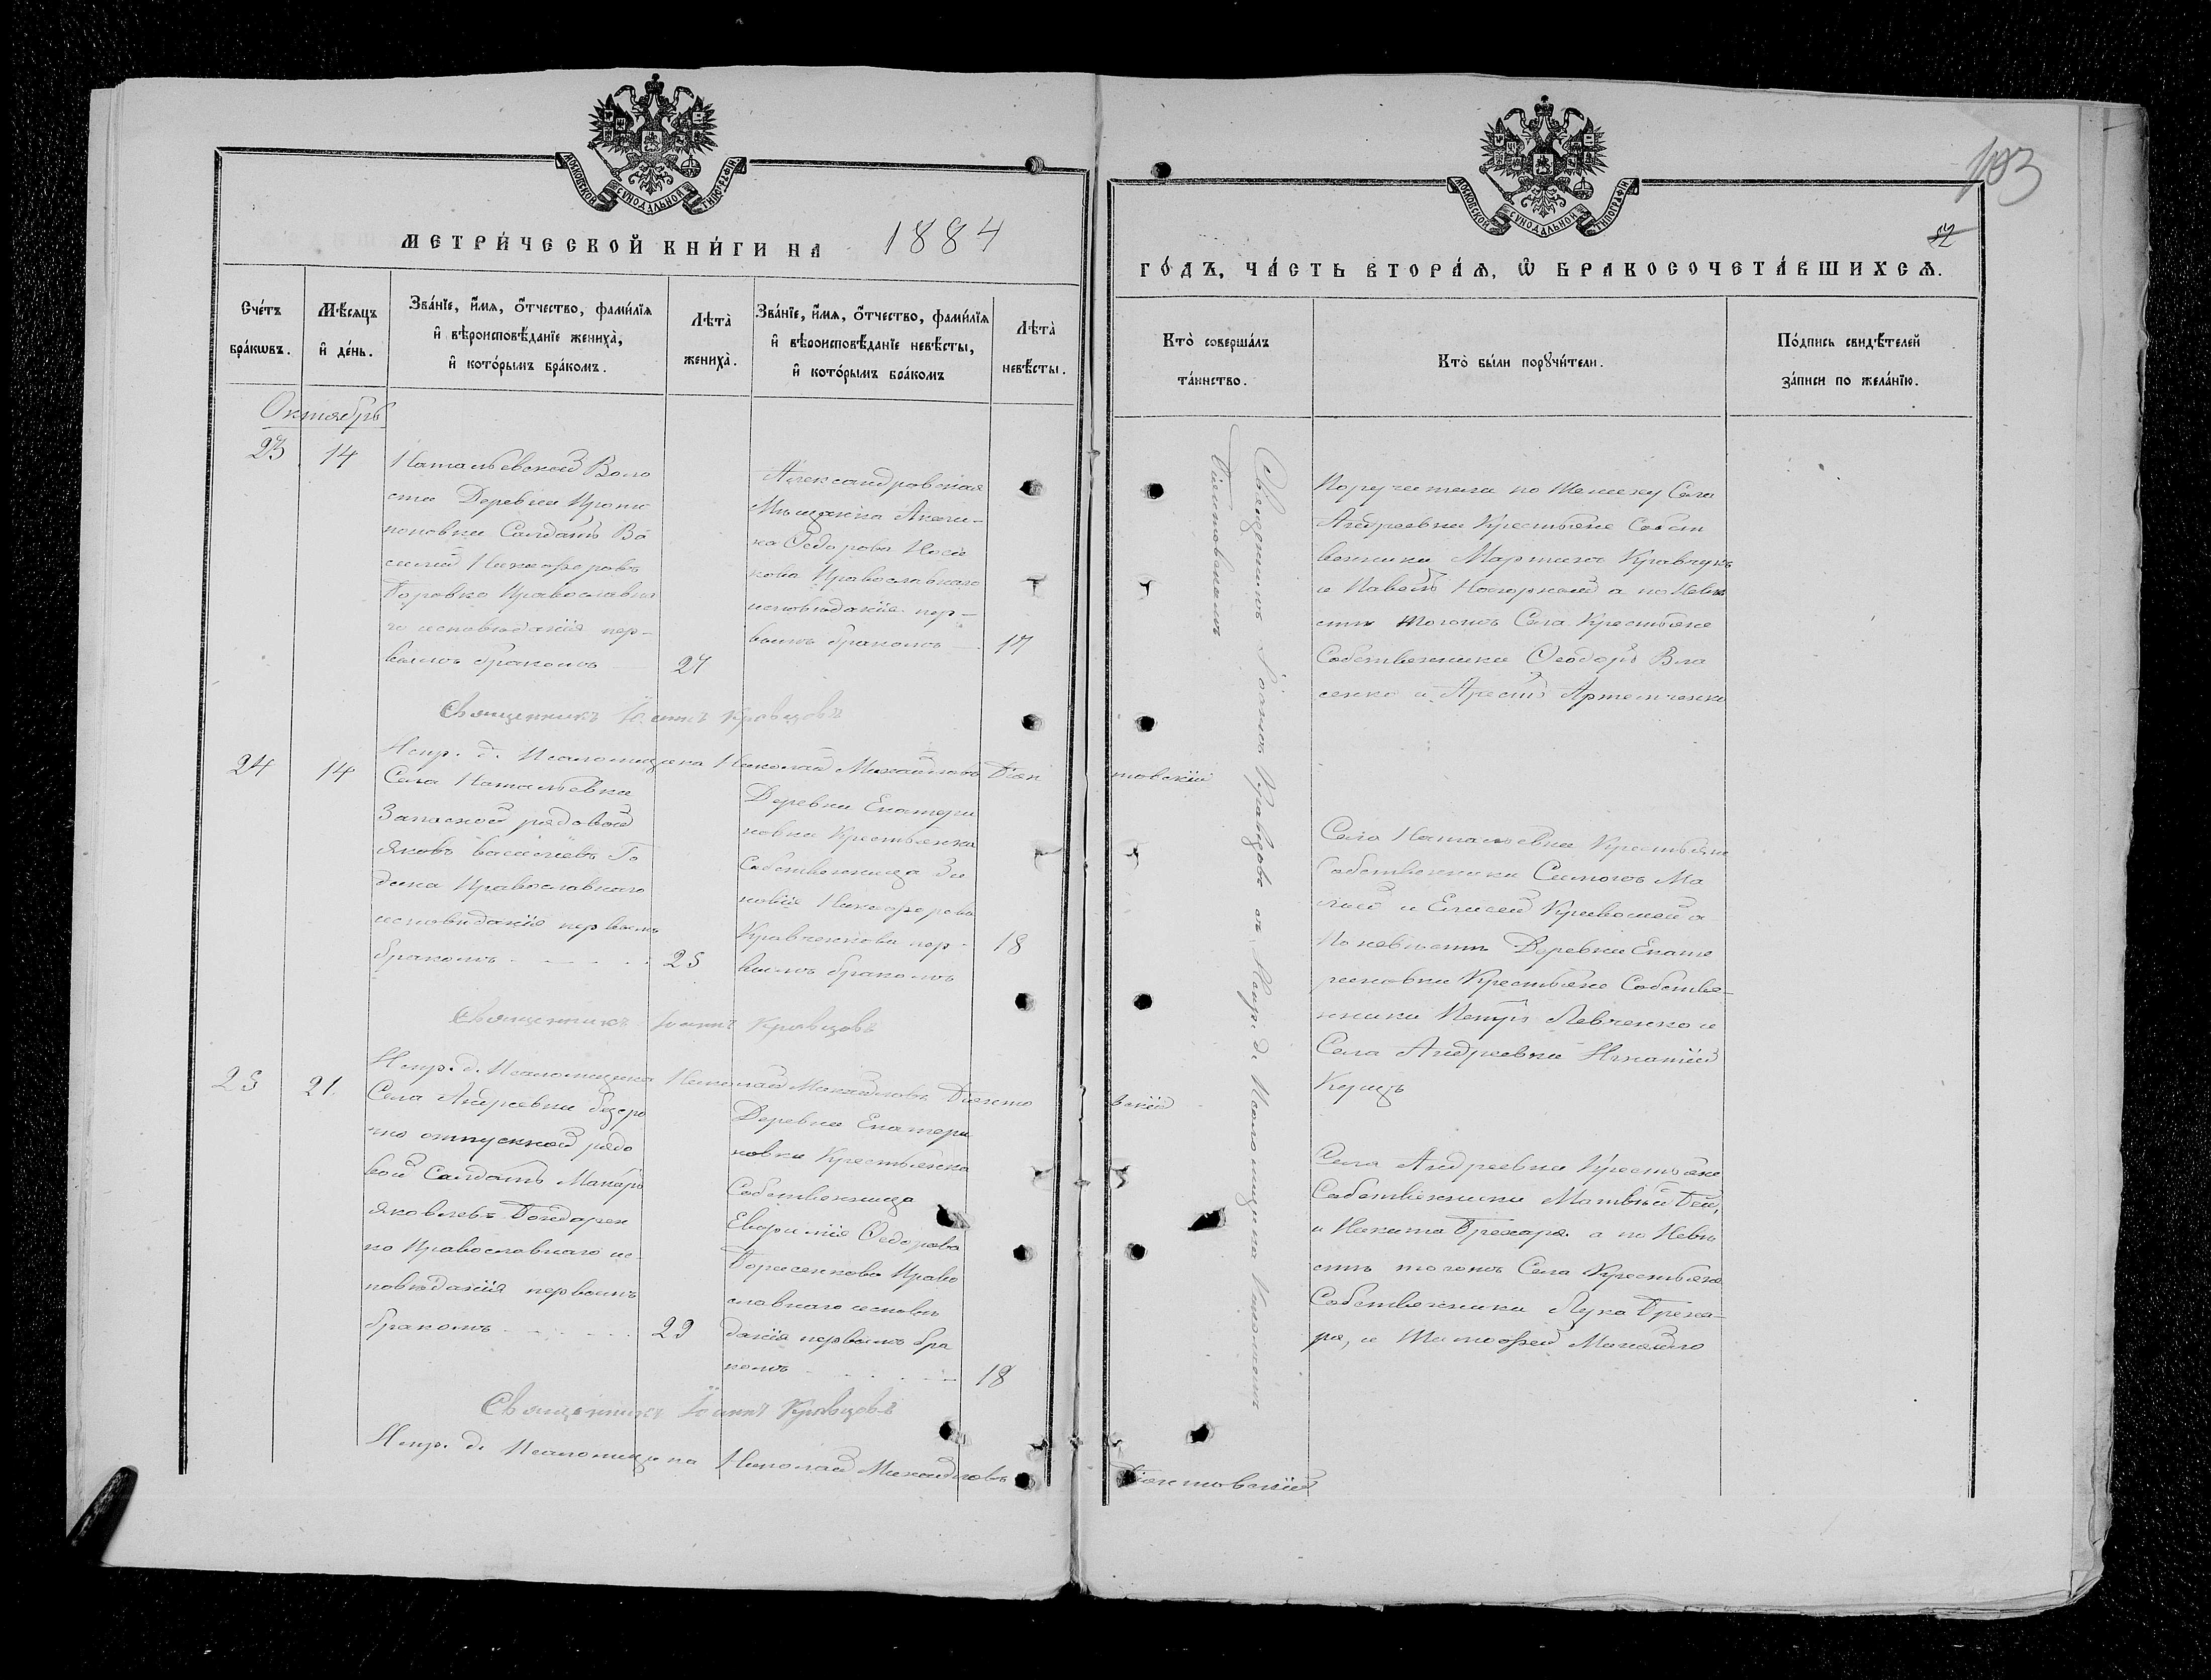 МОСКОВСКОЙ СѴНОДАЛЬНОЙ ТИПОГРАФІИ.
МЕТРИ́ЧЕСКОЙ КНИ́ГИ НА 1884
Сче́тъ бра́кѡвъ.
Мѣ́сяцъ и҆ де́нь.
Зва́нїе, и҆́мя, ѻ҆́тчество, фами́лїя и҆ вѣроисповѣ́данїе жениха̀, и҆ кото́рымъ бра́комъ.
Лѣта̀ жениха̀.
Зва́нїе, и҆́мя, ѻ҆́тчество, фами́лїя и҆ вѣроисповѣ́данїе невѣ́сты, и҆ кото́рымъ бра́комъ
Лѣта̀ невѣ́сты.
Октябрь
23
14
Натальевской Воло
сти Деревни
Солдатъ Ва
силий Никифоровъ
Боровко Православна
го исповѣданія пер-
вымъ бракомъ
27
Александровская
Мѣщанка Акили-
на Федорова Носи
кова Православнаго
исповѣданія пер-
вымъ бракомъ
17
Священникъ Іоаннъ Кравцовъ
Испр. д. Псаломщика Николай Михайловъ
24
14
Села Натальевки
Запасной рядовой
Яковъ Васильевъ Го
дина Православнаго
исповѣданія первымъ
бракомъ
25
Деревни Екатери
новки Крестьянка
Собственница Зи
новія Никифорова
Кравченкова пер-
вымъ бракомъ
18
Священникъ Іоаннъ Кравцовъ
Испр. д. Псаломщика Николай Михайловъ
25
21
Села Андреевки безсро
чно отпускной рядо
вой Солдатъ Макаръ
Яковлевъ Бондарен
ко Православнаго ис
повѣданія первымъ
бракомъ
29
Деревни Екатери
новки Крестьянка
Собственница
Евфимія Федорова
Борисенкова Право
славнаго исповѣ
данія первымъ бра
комъ
18
Священникъ Іоаннъ Кравцовъ
Испр. д. Псаломщика Николай Михайловъ
МОСКОВСКОЙ СѴНОДАЛЬНОЙ ТИПОГРАФІИ.
103
52
ГО́ДЪ, ЧА́СТЬ ВТОРА́Я, Ѡ҆ БРАКОСОЧЕТА́ВШИХСЯ.
Кто̀ соверша́лъ та́инство.
Кто̀ бы́ли порꙋчи́тели.
По́дпись свидѣ́телей за́писи по жела́нїю.
Священникъ Іоаннъ Кравцовъ съ Испр. д. Псаломщика Николаемъ
Поручители по Жениху Села
Андреевки Крестьяне Собст
венники Мартинъ Кравчукъ
и Павелъ Нагорный а по Невѣ
стѣ тогожъ Села Крестьяне
Собственники Феодоръ Вла
сенко и Артемченко
Села Натальевки Крестьяне
Собственники Симонъ Ма
лый и Елисей Кривошей а
По невѣстѣ Деревни Екате
риновки Крестьяне Собстве-
нники Петръ Левченко и
Села Андреевки Игнатій
Села Андреевки Крестьяне
Собственники Матвѣй
и Никита а по Невѣ
стѣ тогожъ Села Крестьяне
Собственники Лука
и Тимофей